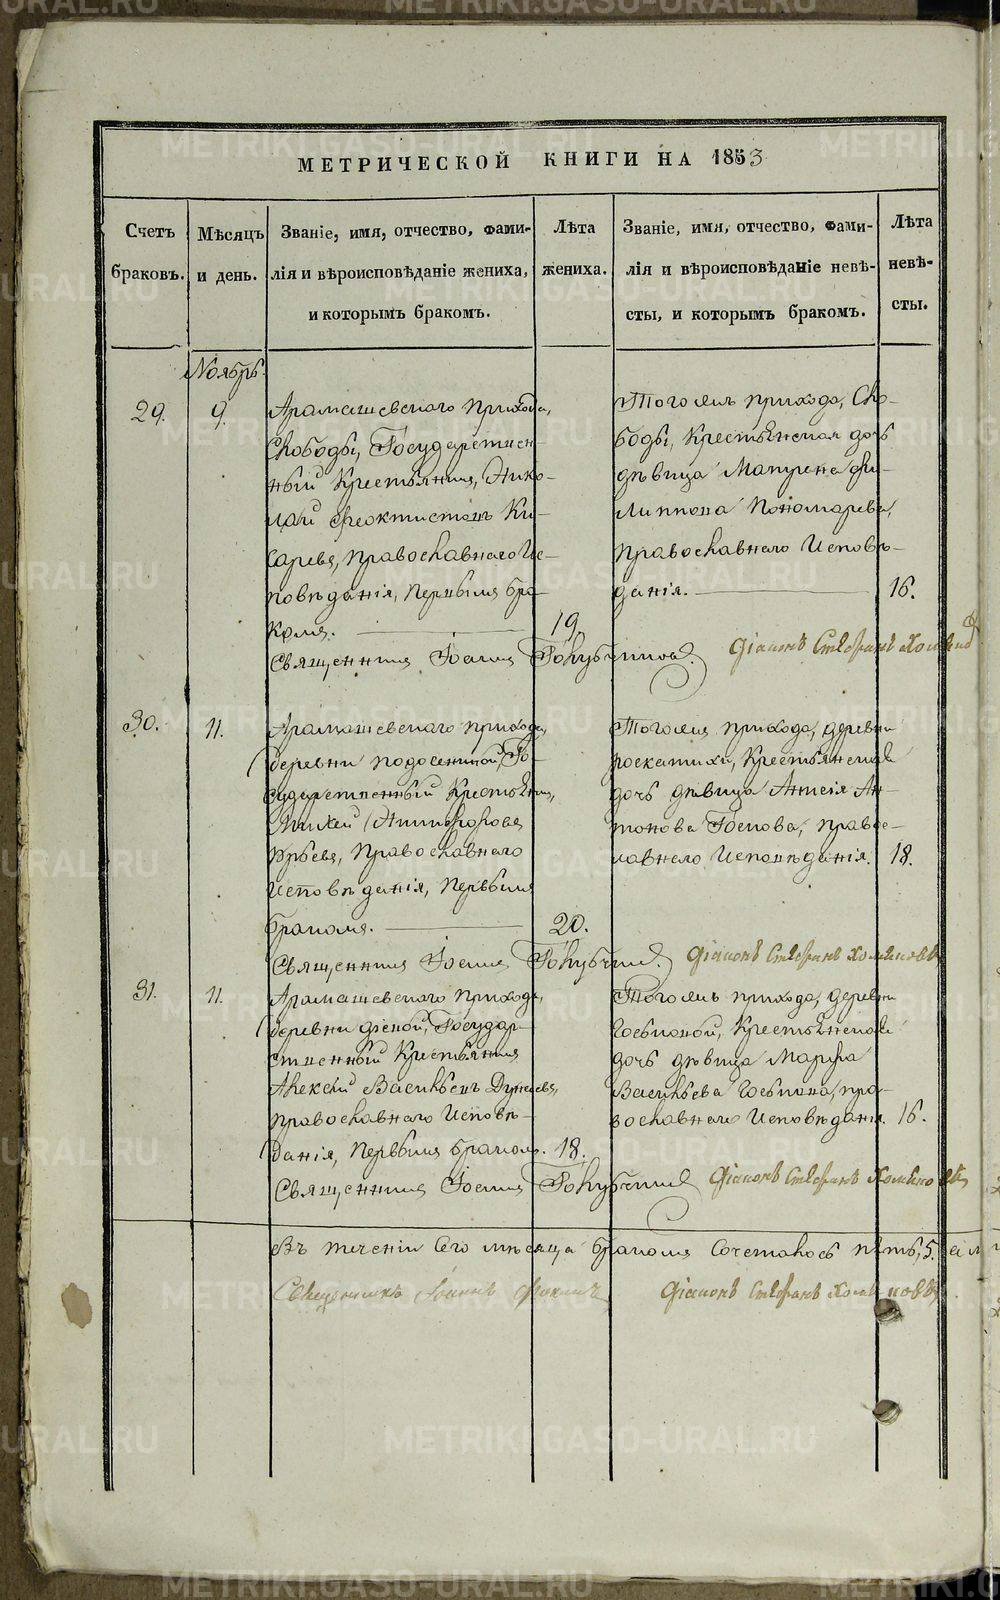 МЕТРИЧЕСКОЙ КНИГИ НА 1853
Счетъ браковъ.
Мѣсяцъ и день.
Званіе, имя, отчество, фами-
лія и вѣроисповѣданіе жениха,
и которымъ бракомъ.
Лѣта
жениха.
Званіе, имя, отчество, фами-
лія и вѣроисповѣданіе невѣ-
сты, и которымъ бракомъ.
Лѣта
невѣ-
сты.
Ноябрь.
29.
9.
Арамашевскаго прихода,
Слободы, Государствен
ный Крестьянинъ, Нико-
лай Феоктистовъ Ки-
саревъ, православнаго Ис-
повѣданія, первымъ бра-
комъ.
19.
Тогожъ прихода, Сло-
боды, Крестьянская дочь
дѣвица Матрена Фи-
липпова Пономарева,
православнаго Исповѣ-
данія.
16.
Священникъ Іоаннъ
Діаконъ Стефанъ
30.
11.
Арамашевскаго прихода,
деревни Подосениной, Го-
сударственный Крестьянинъ,
Никифоровъ
Юрьевъ, Православнаго
Исповѣданія, первымъ
бракомъ.
20.
Тогожъ прихода, деревни
Роскатихи, Крестьянская
дочь дѣвица Ан-
тонова православнаго Исповѣданія.
18.
Священникъ Іоаннъ
Діаконъ Стефанъ
31.
11.
Арамашевскаго прихода,
деревни Государ-
ственный Крестьянинъ
Алексѣй Васильевъ
православнаго Исповѣ-
данія, первымъ бракомъ.
18.
Тогожъ прихода, деревни
Крестьянская
дочь дѣвица Марѳа
Васильева пра-
вославнаго Исповѣданія.
16.
Священникъ Іоаннъ
Діаконъ Стефанъ
Въ теченіи сего мѣсяца бракомъ сочеталось пять, 5.
Священникъ Іоаннъ
Діаконъ Стефанъ
METRIKI.GASO-URAL.RU